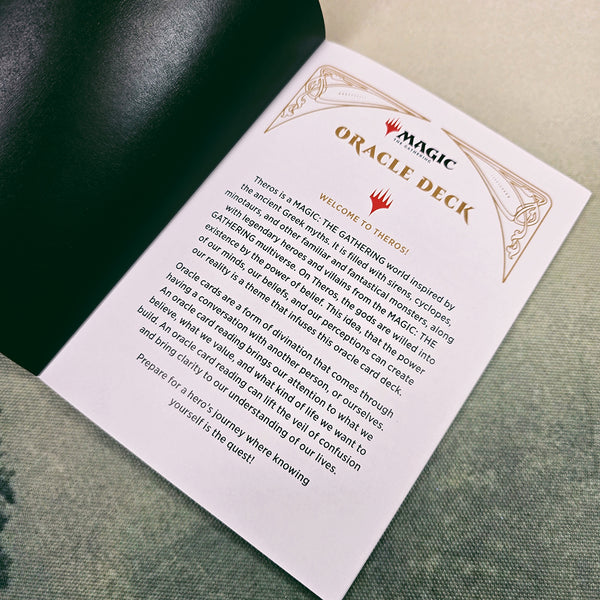 MAGIC
THE GATHERING
ORACLE DECK
WELCOME TO THEROS!
Theros is a MAGIC: THE GATHERING world inspired by
the ancient Greek myths. It is filled with sirens, cyclopes,
minotaurs, and other familiar and fantastical monsters, along
with legendary heroes and villains from the MAGIC: THE
GATHERING multiverse. On Theros, the gods are willed into
existence by the power of belief. This idea, that the power
of our minds, our beliefs, and our perceptions can create
our reality is a theme that infuses this oracle card deck.
Oracle cards are a form of divination that comes through
having a conversation with another person, or ourselves.
An oracle card reading brings our attention to what we
believe, what we value, and what kind of life we want to
build. An oracle card reading can lift the veil of confusion
and bring clarity to our understanding of our lives.
Prepare for a hero's journey where knowing
yourself is the quest!